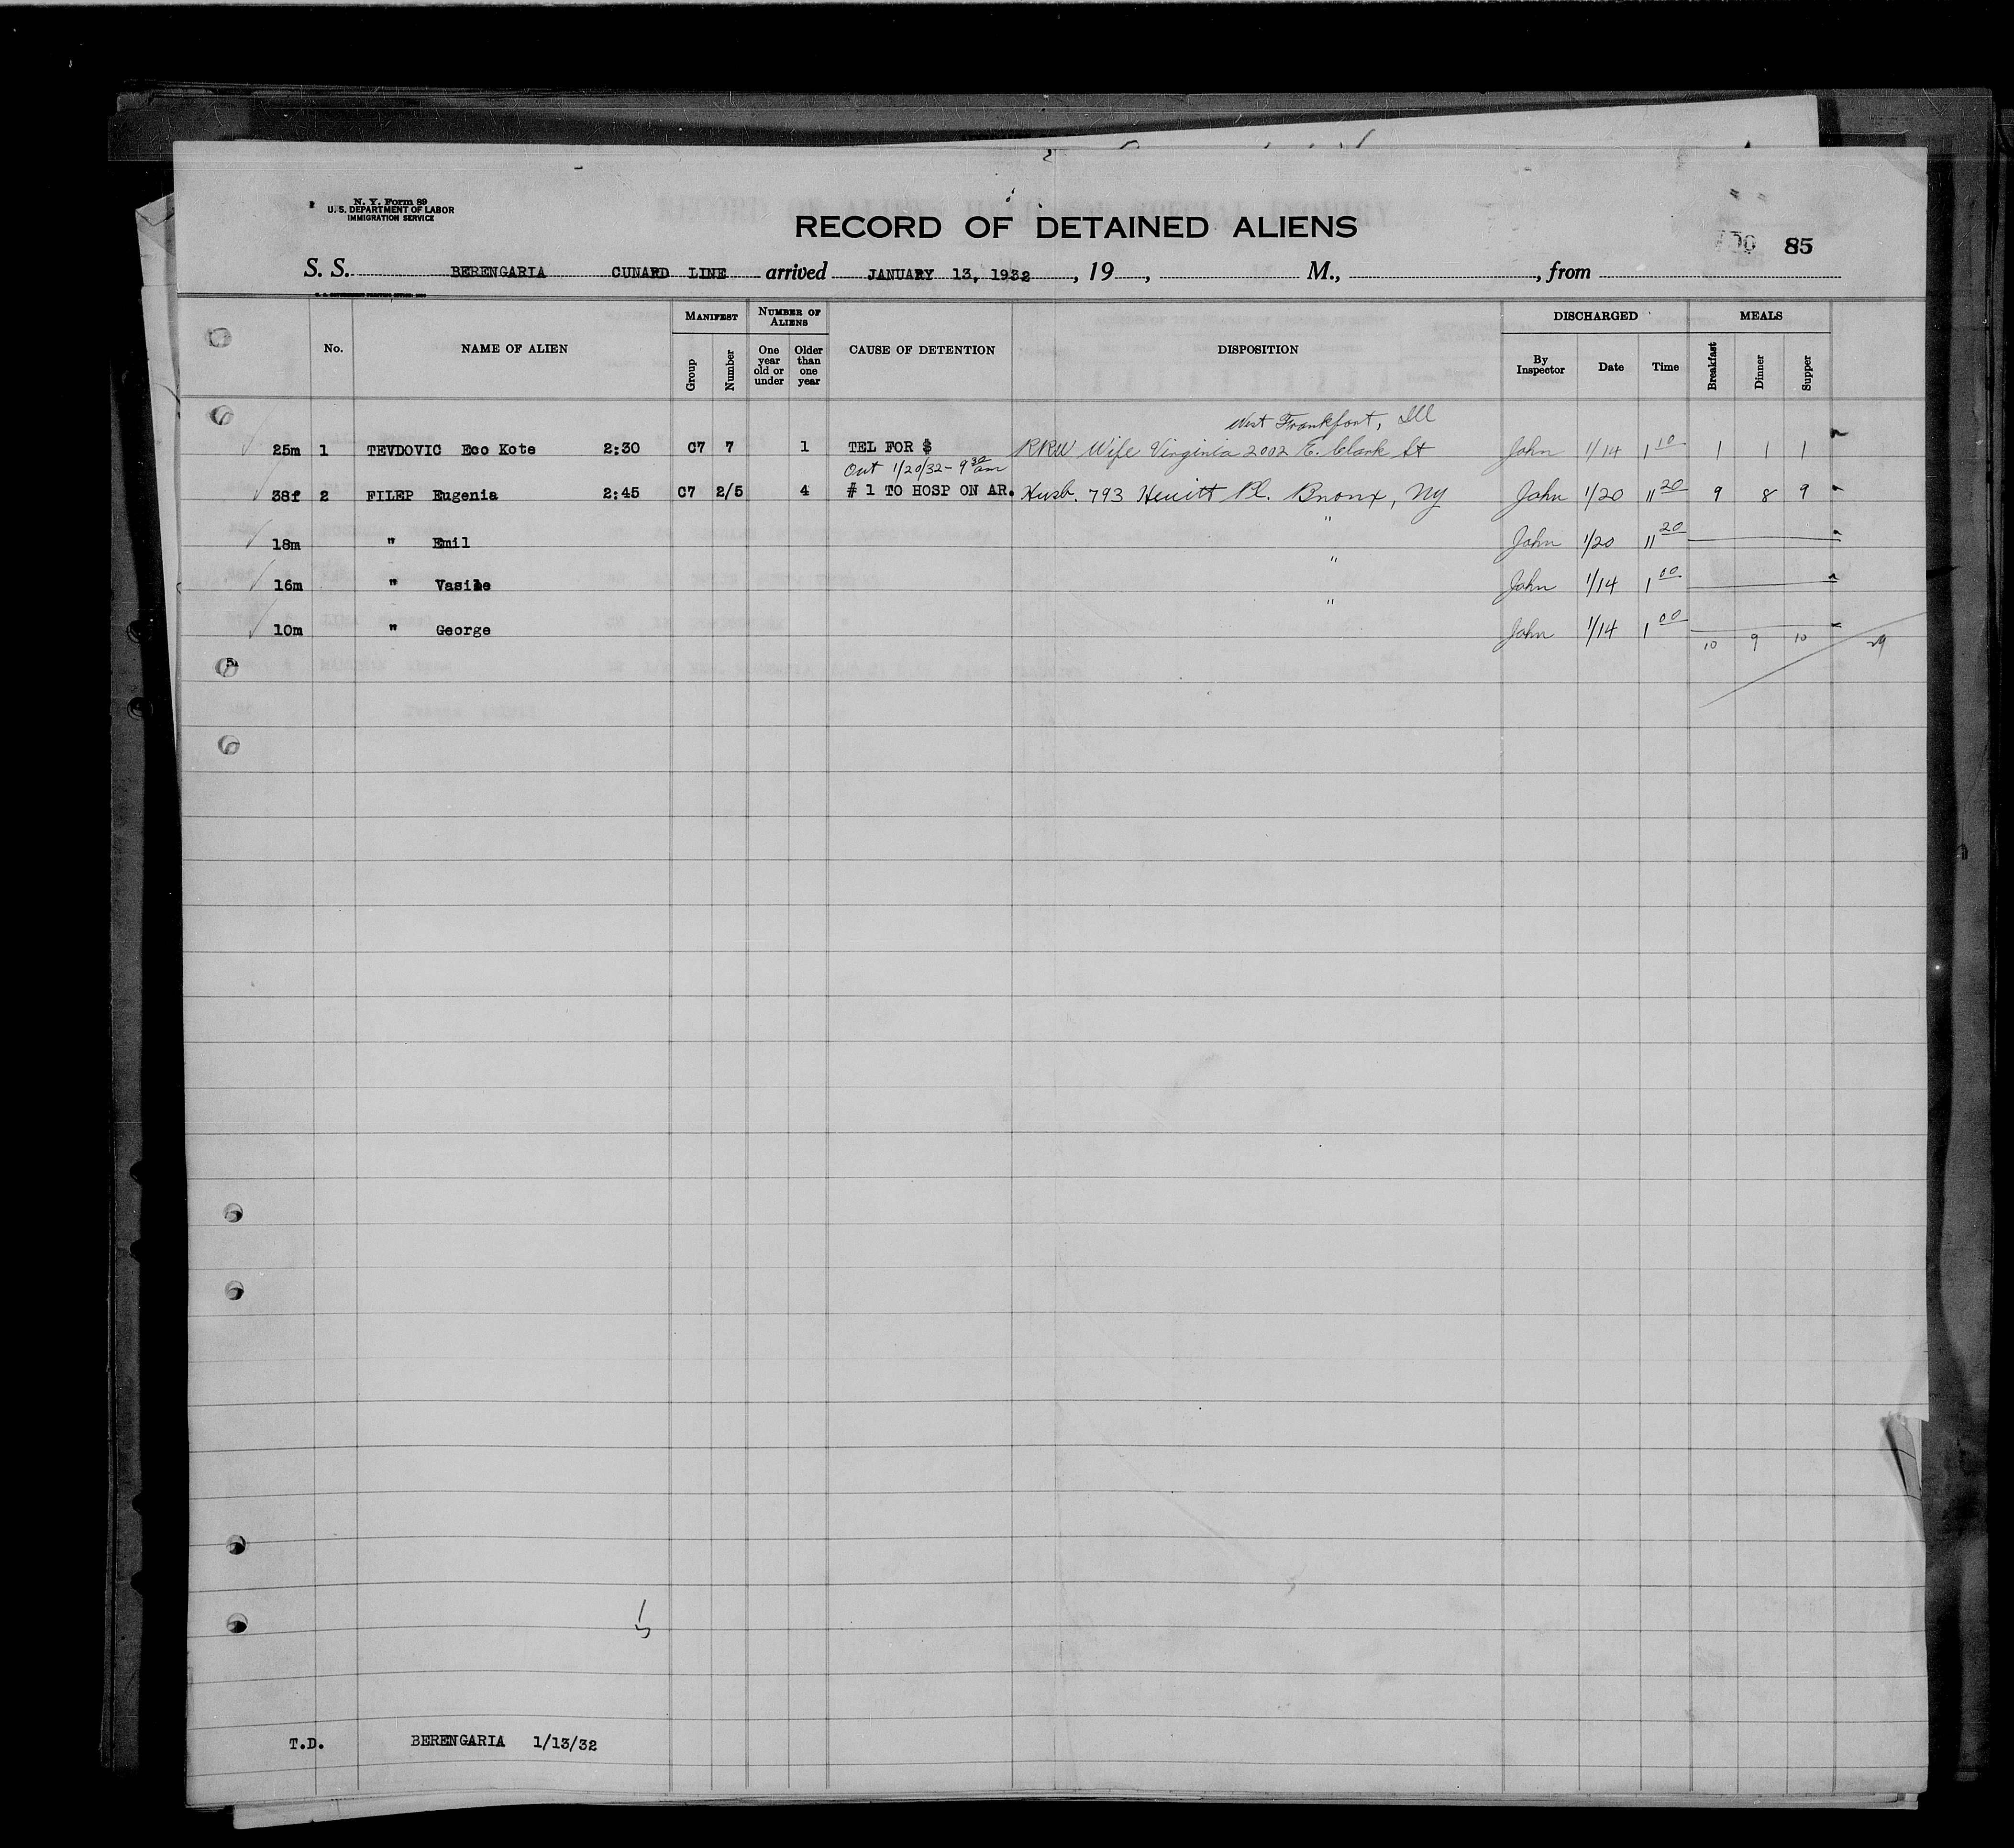 N. Y. Form 89
U. S. DEPARTMENT OF LABOR
IMMIGRATION SERVICE
RECORD OF DETAINED ALIENS
85
S. S. BERENGARIA CUNARD LINE arrived JANUARY 13, 1932, 19, M., , from
No. NAME OF ALIEN MANIFEST Group Number NUMBER OF ALIENS One year old or under Older than one year CAUSE OF DETENTION DISPOSITION DISCHARGED By Inspector Date Time MEALS Breakfast Dinner Supper
West Frankfort, Ill
25m 1 TEVDOVIC Eco Kote 2:30 C7 7 1 TEL FOR $ RRW Wife Virginia 2002 E. Clark St John 1/14 1 10 1 1 1
Out 1/20/32 - 9 30 am
38f 2 FILEP Eugenia 2:45 C7 2/5 4 # 1 TO HOSP ON AR. Husb. 793 Hewitt Pl. Bronx, NY John 1/20 11 20 9 8 9
18m " Emil " John 1/20 11 20
16m " Vasile " John 1/14 1 00
10m " George " John 1/14 1 00
10 9 10 29
5
T.D. BERENGARIA 1/13/32